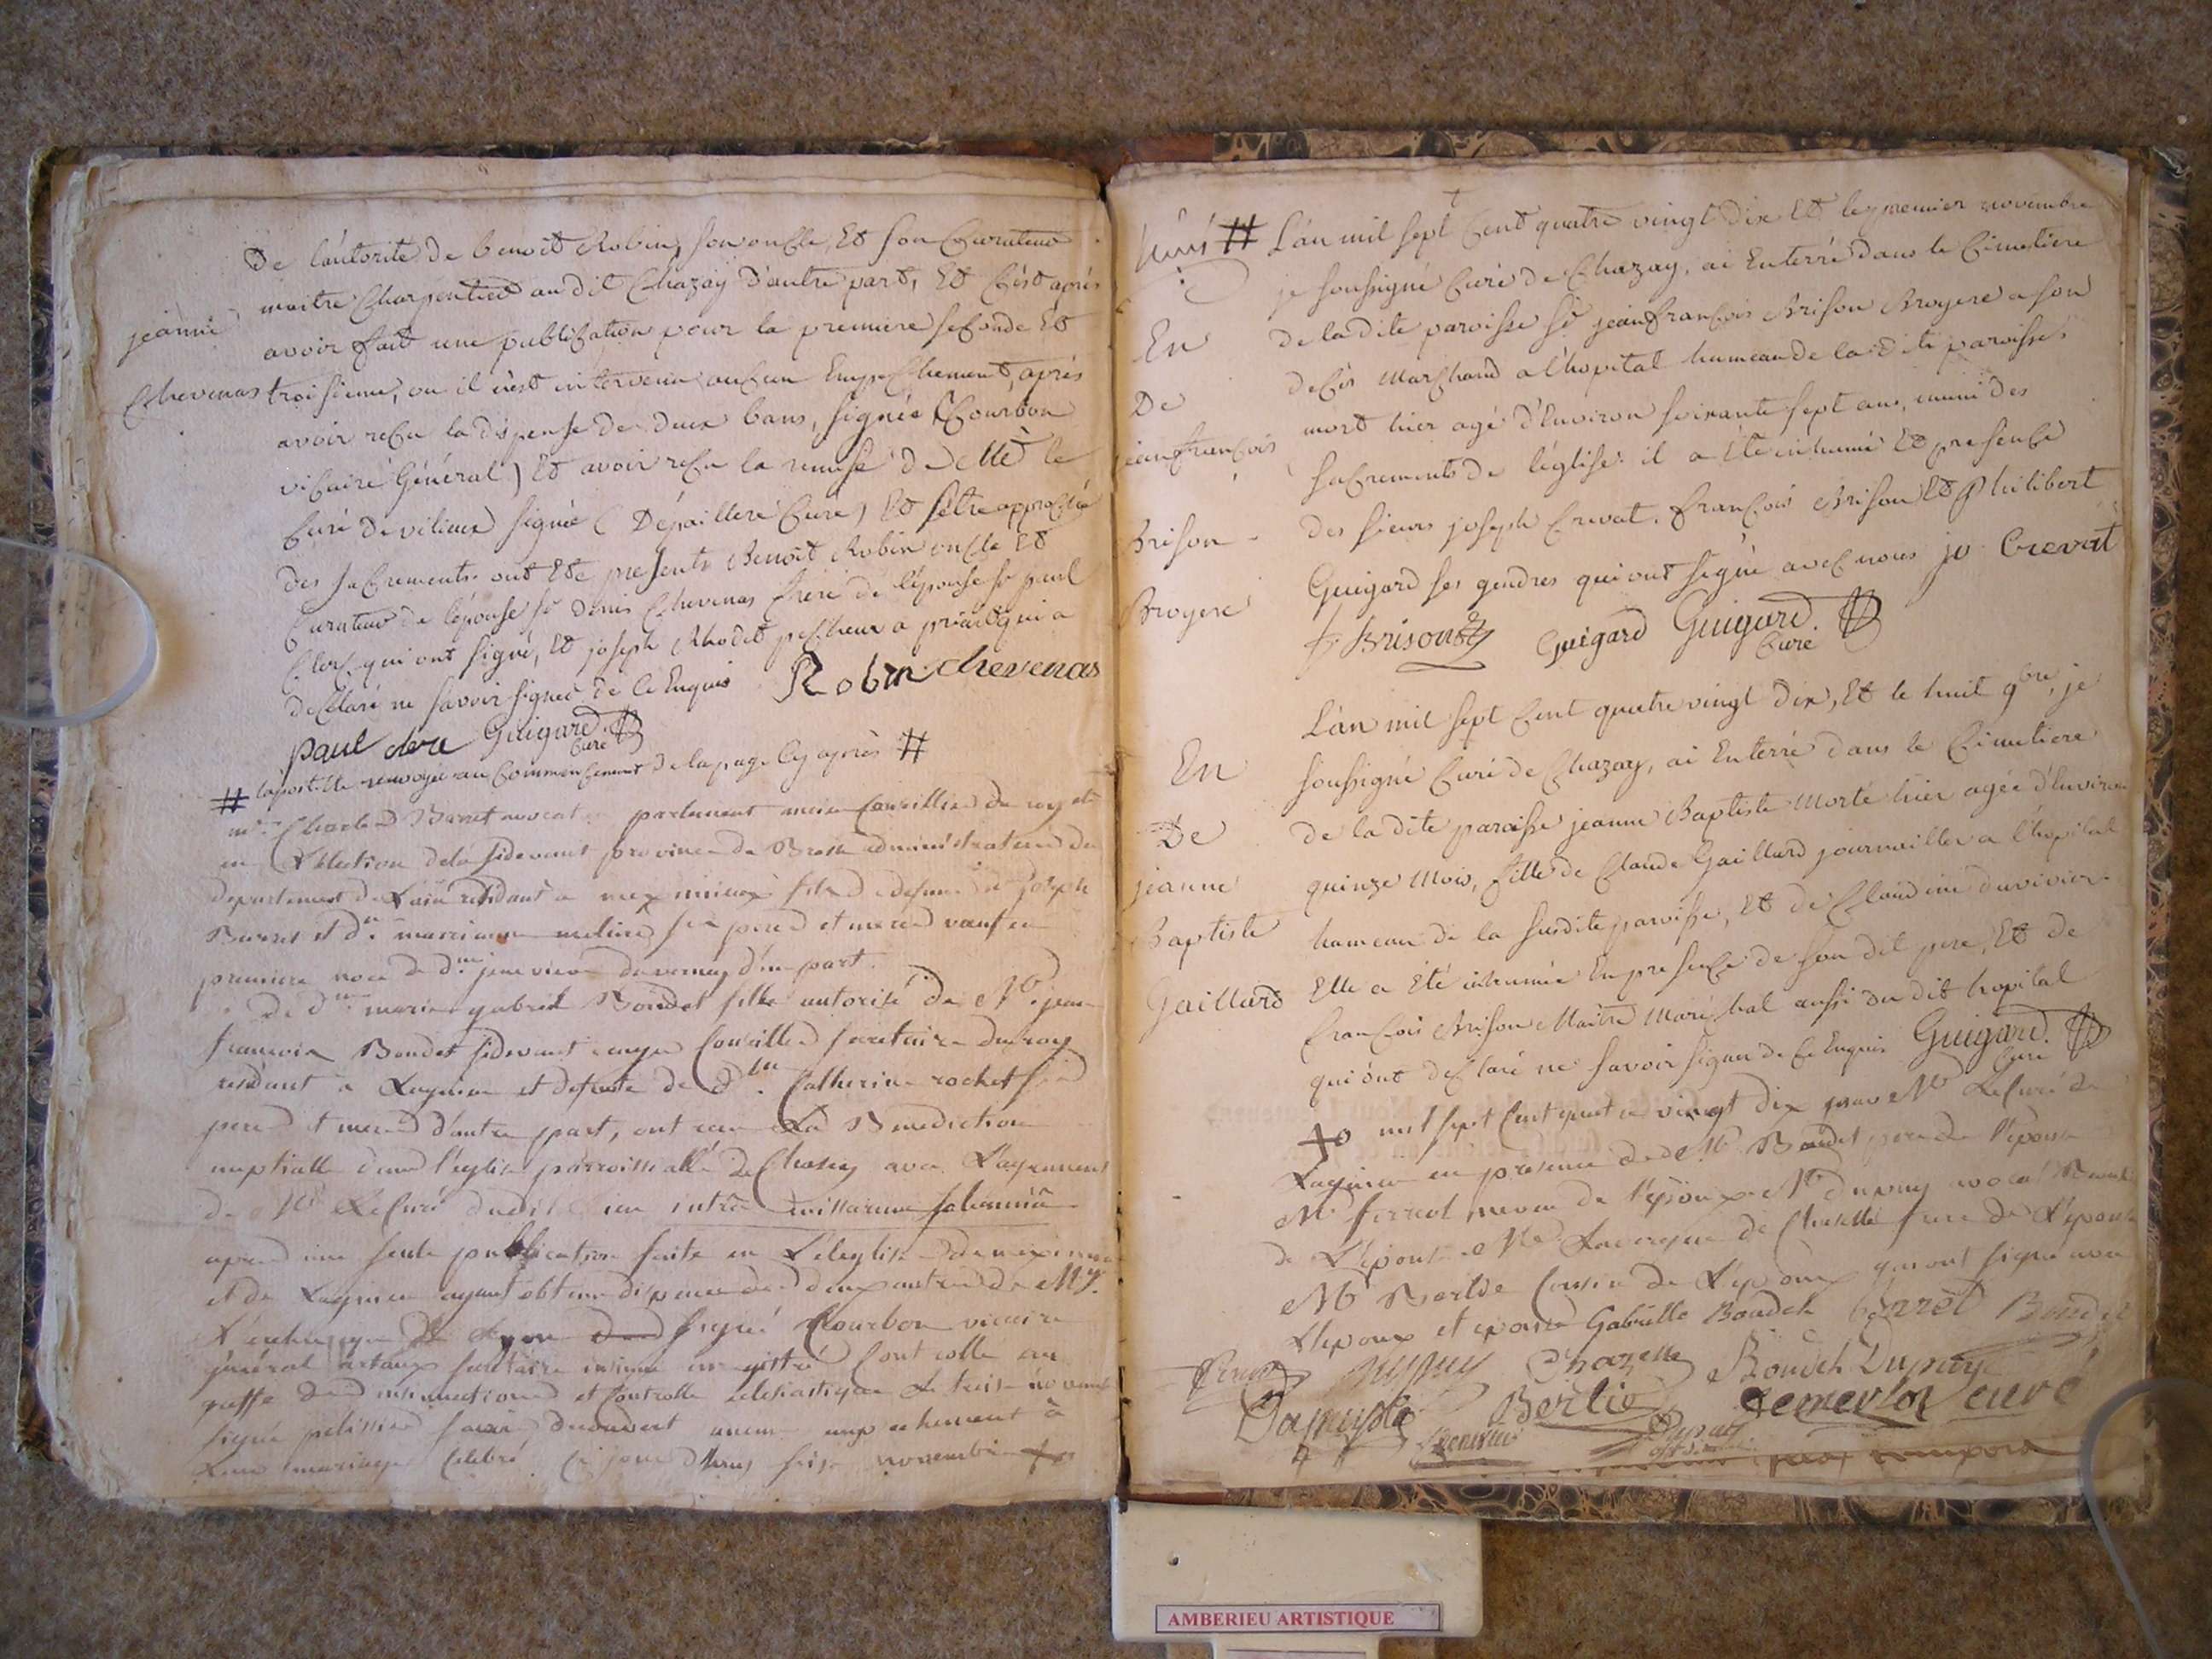 De l'autorité de benoit Robin, son oncle, Et son Curateur
maitre Charpentier au dit Chazay d'autre part, Et C'est après
jeanne
avoir fait une publication pour la premiere seconde Et
Chevenas
troisieme, ou il n'est intervenu aucun Empechement, après
avoir reçu la dispense de deux bans, signée (Courbon
vicaire Général) Et avoir reçu la remise de Mr le
Curé de vilieux signée ( Depaillere Curé) Et s'être approché
des sacrements. ont Eté presents Benoit Robin oncle Et
Curateur de l'épouse sr Denis Chevenas frere de l'épouse sr paul
Clerc qui ont signé, Et joseph Rhodet pecheur a priai qui a
declaré ne savoir signer de Ce Enquis Robin chevenas
paul clere Guigard Curé
# la postille renvoyée au Commencement de la page Cy après #
mr Charles Barret avocat parlement ancien Conseiller du roy et
en L'election de la sidevant province de Bresse administrateur du
departement de L'ain residant a meximieux fils de defunt sr joseph
Barret et de marianne ses pere et mere veuf en
premiere noce de dme jeneviève duvernay d'une part
de dlle marie gabriel Boudet fille autorisé de Mr jean
francois Boudet sidevant ecuyer Conseiller secretaire du roy
residant a Lagnieu et defunte de dme Catherine rocket ses
pere et mere d'autre part, ont reçu La Benediction
nuptialle dans l'eglise parroissialle de Chasey avec L'agrement
de Mr Le Curé dudit lieu
apres une seule publication faite en L'eleglise de meximieux
et de Lagnieu ayant obtenu dispence des deux autres de Mgr
L'archeveque de Lyon signé Courbon vicaire
général artaux secretaire insinué enregistré Controllé au
greffe des insinuations et Controlle eclesiastique Le treise novembre
signé pelissier sans decouvert aucun empechement à
Leur mariage Celebré Ce jour d'huy seise novembre

# L'an mil sept Cent quatre vingt dix Et le premier novembre
je soussigné Curé de Chazay, ai Enterré dans le Cimetiere
En
de la dite paroisse sr jean francois Brison Broyere a son
De
decès Marchand a l'hopital hameau de la dite paroisse
jean francois
mort hier agé d'Environ soixante sept ans, muni des
sacrements de l'église. il a été inhumé Et presence
Brison
des sieurs joseph Crevat, francois Brison Et Philibert
Broyere
Guigard ses gendres qui ont signé avec nous jo Crevat
fr Brison Guigard Guigard. Curé
L'an mil sept Cent quatre vingt Dix, Et le huit 9bre, je
En
soussigné Curé de Chazay, ai Enterré dans le Cimetiere
De
de la dite paroisse jeanne Baptiste morte hier agée d'Environ
jeanne
quinze mois, fille de Claude Gaillard journaillier a l'hopital
Baptiste
hameau de la susdite paroisse, Et de Claudine duvivier.
Gaillard
Elle a été inhumée En presence de son dit pere, Et de
francois Brison Maitre Maréchal aussi du dit hopital
qui ont declaré ne savoir signer de Ce Enquis Guigard. Curé
mil sept Cent quatre vingt dix par Mr Le Curé de
Lagnieu en presence de Mr Boudet pere de l'epouse
Mr ferret neveu de l'epoux Mr dupuy avocat
de L'epouse Mr Lavergne de Chaselle frere de L'epouse
Mr Berlie Cousin de L'epoux qui ont signé avec
L'epoux et epouse Gabrielle Boudet barret Boudet
dupuy Chazelle Boudet Dupuy
Berlie curé